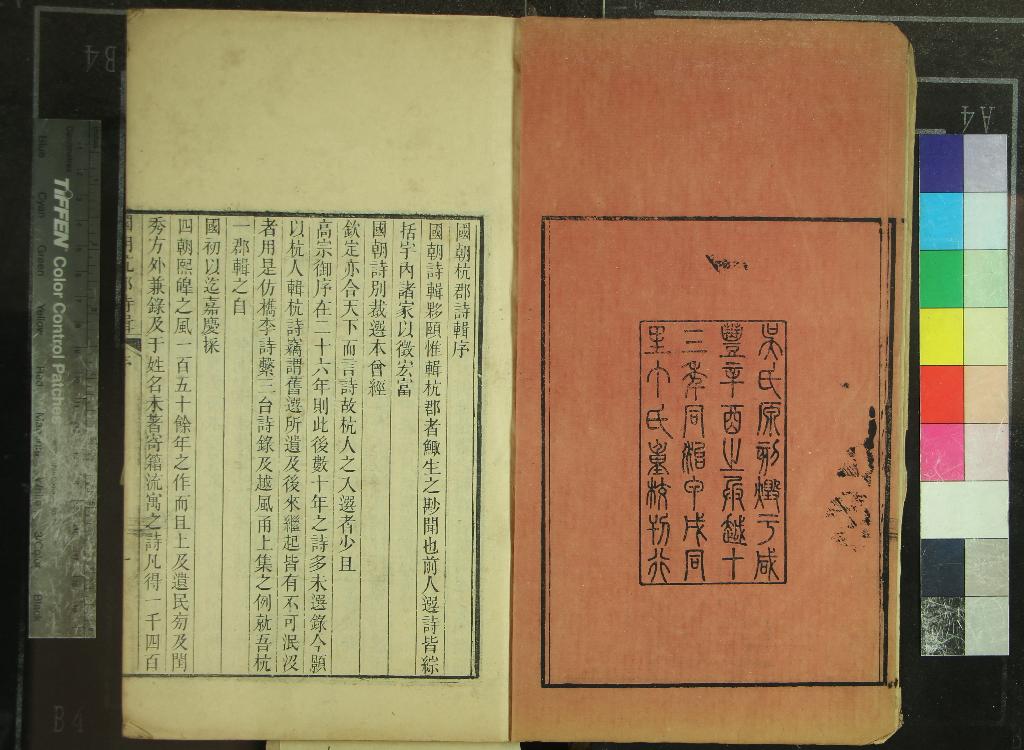 吳氏原刻燬于咸
豐辛酉之厄越十
三年同治甲戌同
里丁氏重校刊行
國朝杭郡詩輯序
國朝詩輯夥頤惟輯杭郡者鯫生之尠聞也前人選詩皆綜
括宇內諸家以徵宏富
國朝詩別裁選本曾經
欽定亦合天下而言詩故杭人之入選者少且
高宗御序在二十六年則此後數十年之詩多未選錄今顥
以杭人輯杭詩竊謂舊選所遺及後來繼起皆有不可泯沒
者用是仿檇李詩繫三台詩錄及越風甬上集之例就吾杭
一郡輯之自
國初以迄嘉慶採
四朝熙皞之風一百五十餘年之作而且上及遺民旁及閨
秀方外兼錄及于姓名未著寄籍流寓之詩凡得一千四百
國朝杭郡詩輯 序 一
TIFFEN Color Control Patches
Blue Cyan Green Yellow Red Magenta White 3/Color Black
B4
A4
B4